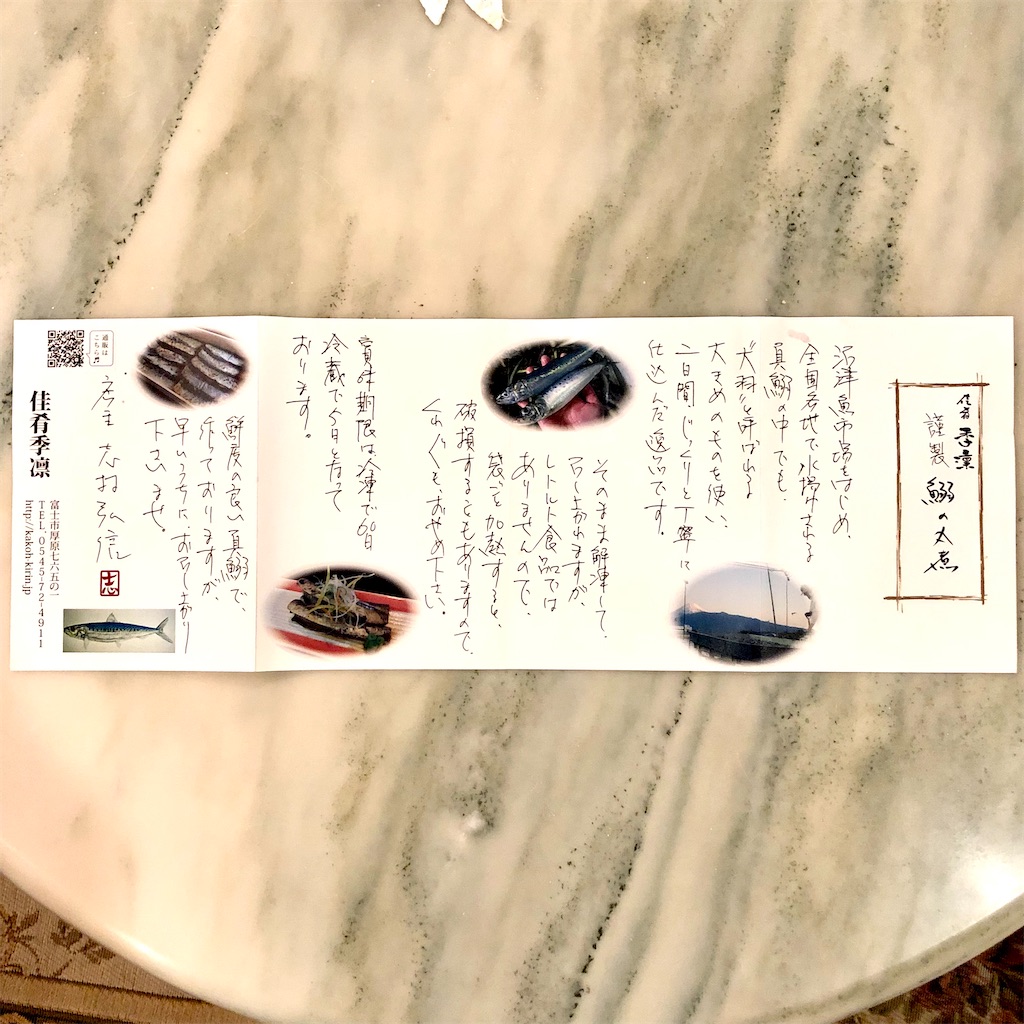 佳肴 季凛
謹製 鰯の太煮
沼津魚市場をはじめ、
全国各地で水揚げされる
真鰯の中でも、
"大羽"と呼ばれる
大きめのものを使い、
二日間、じっくりと丁寧に
仕込んだ逸品です。
そのまま解凍して、
召し上がれますが、
レトルト食品では
ありませんので、
袋を加熱すると、
破損することもありますので、
くれぐれも、おやめ下さい。
賞味期限は冷凍で60日
冷蔵で5日となって
おります。
鮮度の良い真鰯で、
作っておりますが、
早いうちに、お召し上がり
下さいませ。
店主 志村弘信
志
通販は
こちら♬
佳肴季凛
富士市厚原七六五の一
TEL.0545-72-4911
http://kakoh-kirin.jp